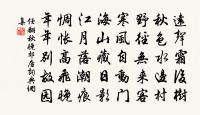 遠聲霜後樹
秋色水邊村
野徑無來客
寒風自動門
海山藏日影
江月落潮痕
惆悵高飛晚
年年別故園
任翻秋晚郊居詞典網
集